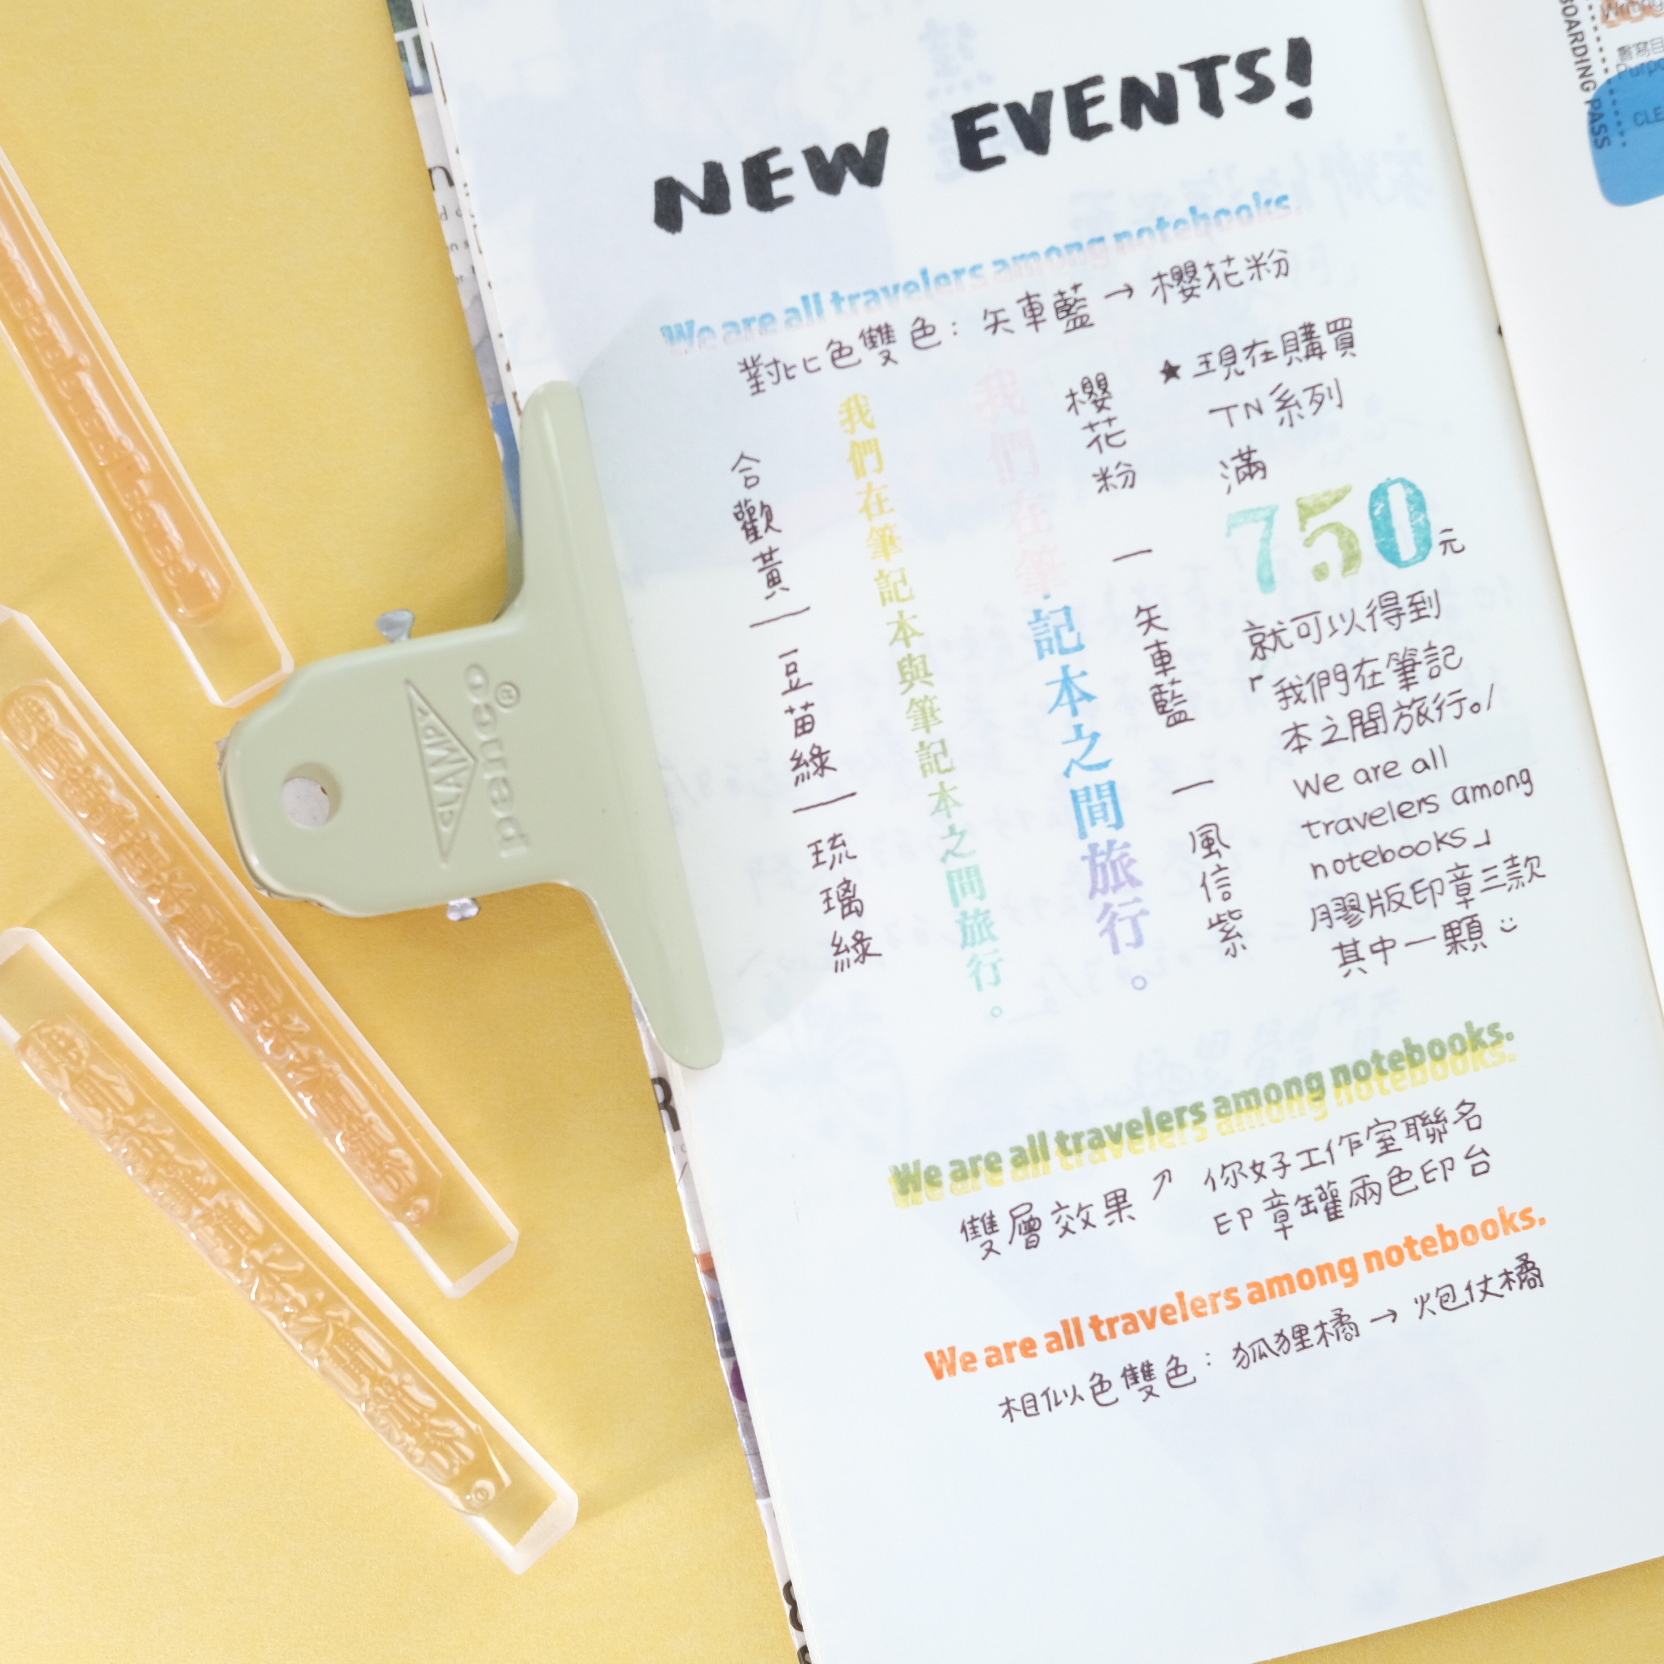 NEW EVENTS!
We are all travelers among notebooks.
對比色雙色：矢車藍→櫻花粉
合歡黃—豆苗綠—琉璃綠
我們在筆記本與筆記本之間旅行。
我們在筆記本之間旅行。
櫻花粉—矢車藍—風信紫
★現在購買
TN系列
滿
750元
就可以得到
「我們在筆記
本之間旅行。/
We are all
travelers among
notebooks」
膠版印章三款
其中一顆
We are all travelers among notebooks.
We are all travelers among notebooks.
雙層效果↗
你好工作室聯名
印章罐兩色印台
We are all travelers among notebooks.
相似色雙色：狐狸橘→炮仗橘
penco®
CLAMPY
BOARDING PASS
書寫目
Purpo
CLE